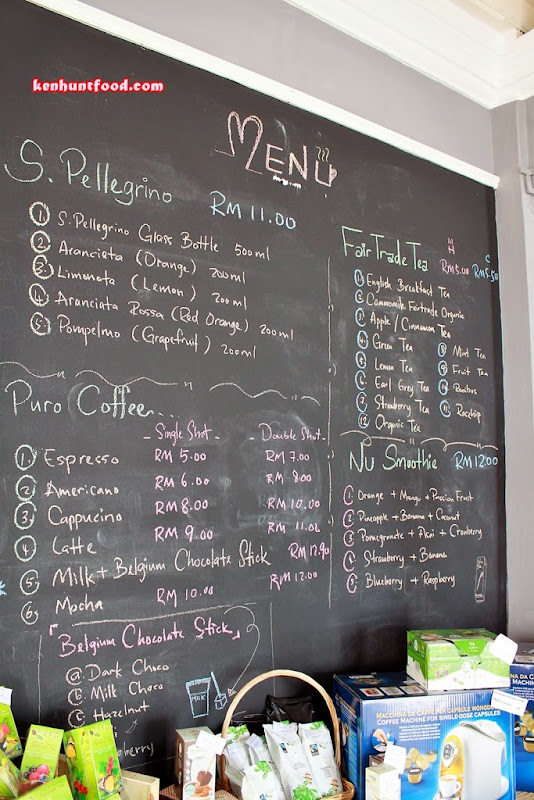 kenhuntfood.com
MENU
S. Pellegrino RM 11.00
1 S. Pellegrino Glass Bottle 500ml
2 Aranciata (Orange) 200ml
3 Limonata (Lemon) 200ml
4 Aranciata Rossa (Red Orange) 200ml
5 Pompelmo (Grapefruit) 200ml
Puro Coffee...
- Single Shot - - Double Shot -
1 Espresso RM 5.00 RM 7.00
2 Americano RM 6.00 RM 8.00
3 Cappucino RM 8.00 RM 10.00
4 Latte RM 9.00 RM 11.00
5 Milk + Belgium Chocolate Stick RM 12.90
6 Mocha RM 10.00 RM 12.00
Belgium Chocolate Stick
a. Dark Choco
b. Milk Choco
c. Hazelnut
MILK
Fair Trade Tea
H C
RM 5.00 RM 5.50
1 English Breakfast Tea
2 Cammomile Fairtrade Organic
3 Apple / Cinnamon Tea
4 Green Tea
5 Lemon Tea
6 Earl Grey Tea
7 Strawberry Tea
8 Mint Tea
9 Fruit Tea
10 Rooibos
11 Rosehip
12 Organic Tea
Nu Smoothie RM 12.00
1 Orange + Mango + Passion Fruit
2 Pineapple + Banana + Coconut
3 Pomegranate + Acai + Cranberry
4 Strawberry + Banana
5 Blueberry + Raspberry
COFFEE MACHINE FOR SINGLE-DOSE CAPSULES